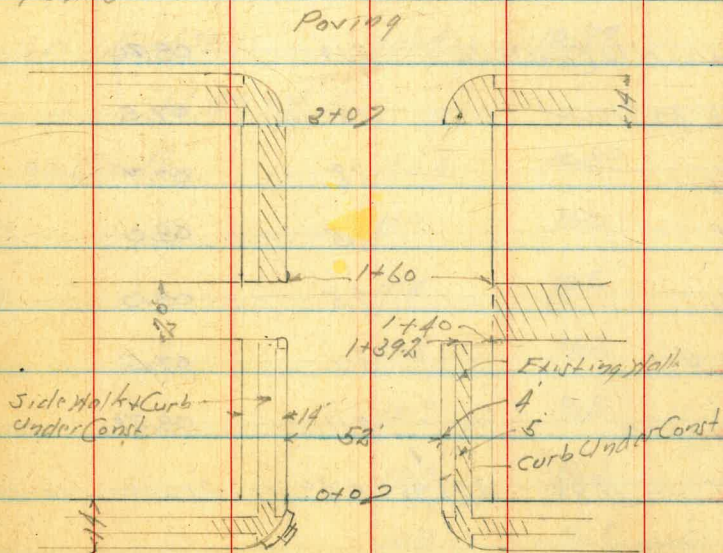 Paving
14
3+02
1+60
20'
1+40
1+392
Existing Walk
Side Walk & Curb
Under Const.
14'
4'
52'
5'
Curb Under Const
0+02
14